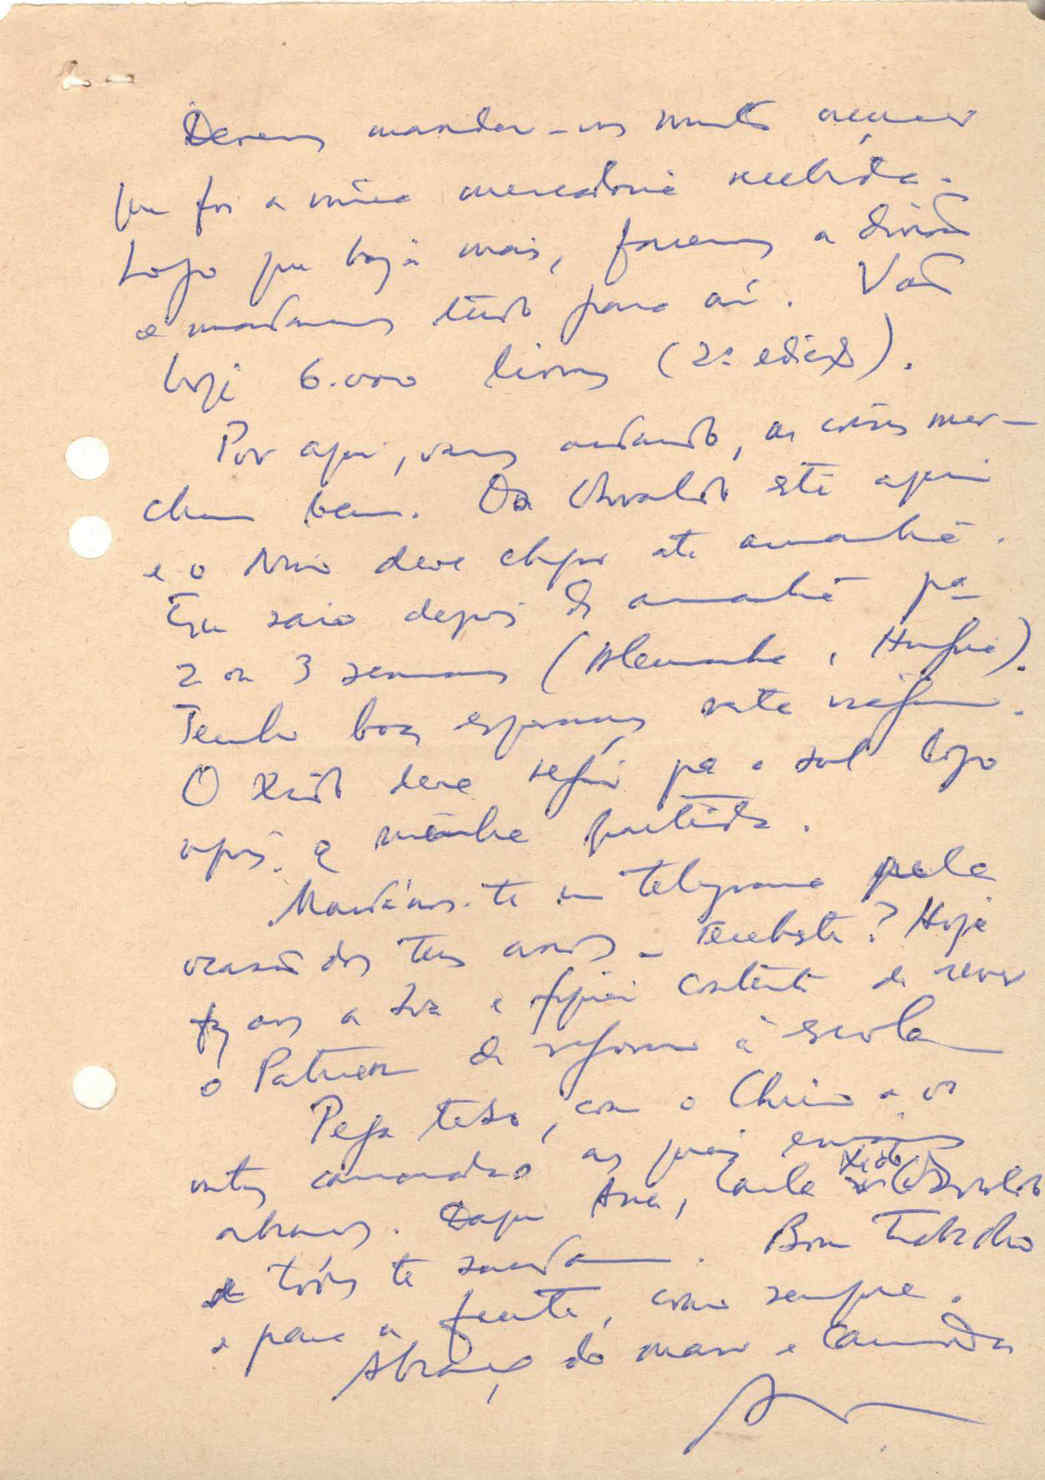 2 -
Devemos mandar-vos muito açúcar
que foi a única mercadoria recebida.
Logo que haja mais, faremos a divisão
e mandamos tudo para aí. Vão
hoje 6.000 livros (2ª edição).
Por aqui, vamos andando, as coisas mar-
cham bem. O Osvaldo está aqui
e o Nino deve chegar até amanhã.
Eu saio depois de amanhã pa
2 ou 3 semanas (Alemanha, Hungria).
Tenho boas esperanças nesta viagem.
O Xido deve seguir pª o sul logo
após a minha partida.
Mandámos-te um telegrama pela
ocasião dos teus anos - recebeste? Hoje
faz anos a Iva e fiquei contente de rever
o de reforma à escola
Pega teso, com o Chico e os
outros camaradas aos quais enviamos
abraços. Daqui Ana, Lucette, Xido, Osvaldo
e todos te saudam. Bom trabalho
e para a frente, como sempre.
Abraço do mano e camarada